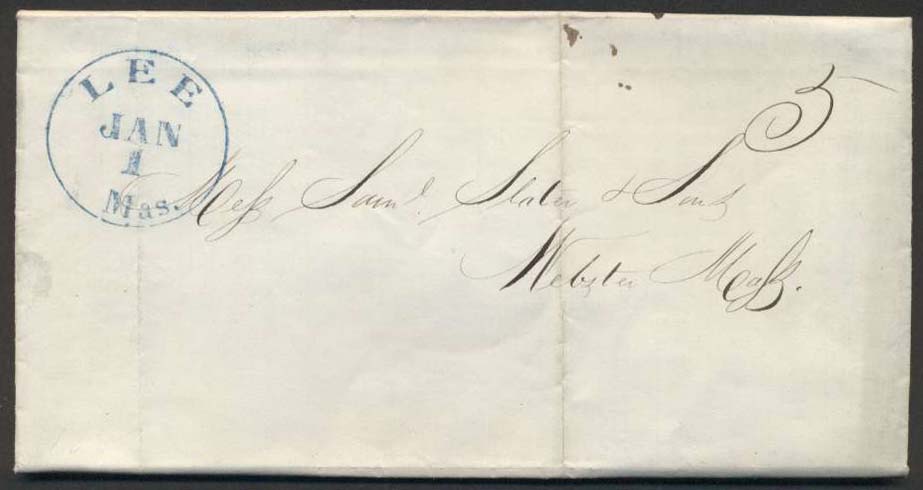 LEE
JAN
1
Mas.
5
Mess Saml. Slater & Sons
Webster Mass.